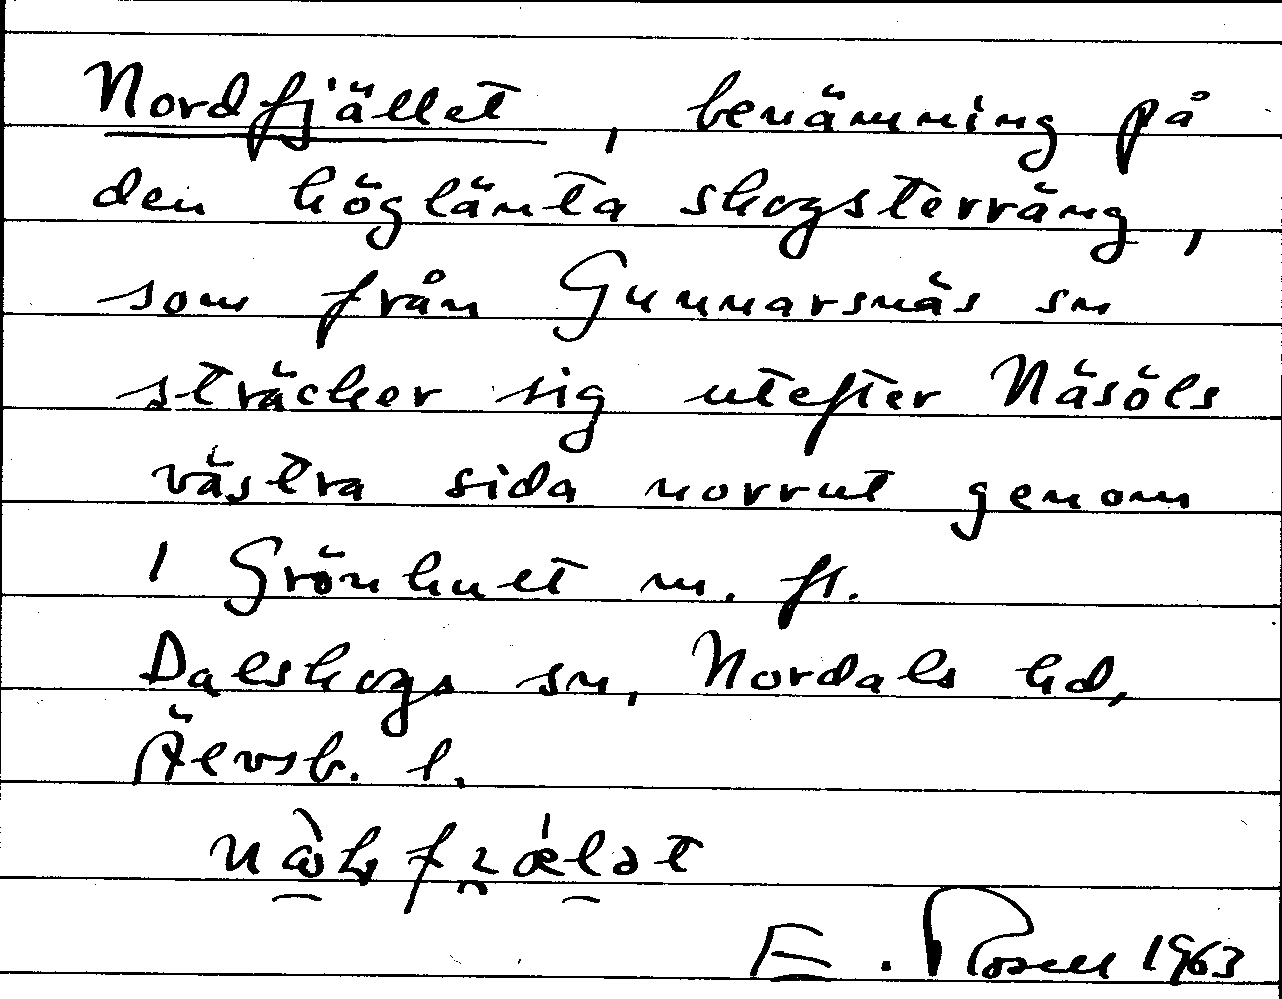 Nordfjället, benämning på
den höglänta skogsterräng,
som från Gunnarsnäs sn
sträcker sig utefter Näsöls
västra sida norrut genom
1 Grönhult m. fl.
Dalskogs sn, Nordals hd,
Älvsb. l.
E. Rosell 1963